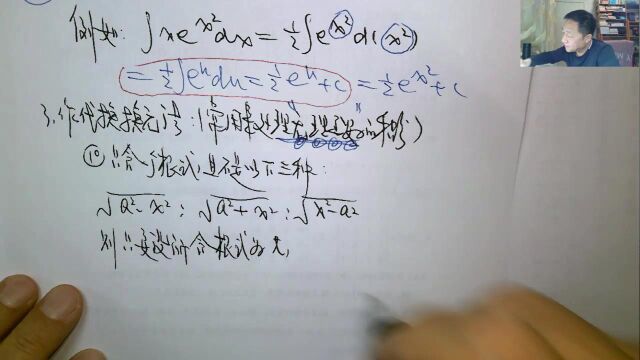 例如: ∫xe^{x²}dx = ½∫e^{x²}d(x²)
= ½∫e^u du = ½e^u + c = ½e^{x²} + c
3. 作代换换元法: (常用来处理无理函数的积分)
① 只含一个根式且不是以下三种:
√(a²-x²); √(a²+x²); √(x²-a²)
则只要设所含根式为t,